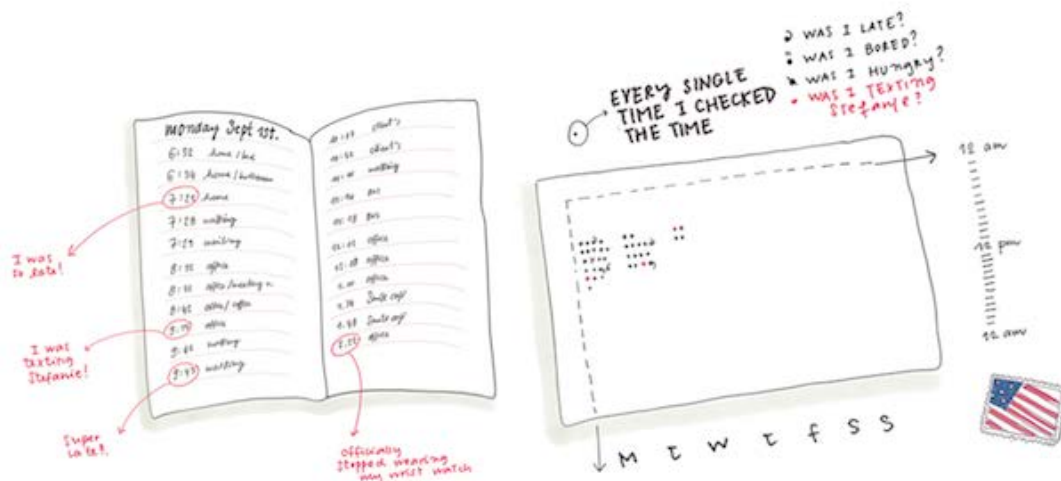 monday Sept 1st.
6:32 home / bed
6:34 home / bathroom
7:25 home
7:28 walking
7:29 waiting
office
office / meeting
office / office
office
walking
9:43 walking
client's
client's
walking
bus
bus
office
office
office
office
I was
so late!
I was
texting
Stefanie!
Super
late!
officially
stopped wearing
my wrist watch
EVERY SINGLE
TIME I CHECKED
THE TIME
WAS I LATE?
WAS I BORED?
WAS I HUNGRY?
WAS I TEXTING
Stefanie?
12 am
12 pm
12 am
M T W T F S S